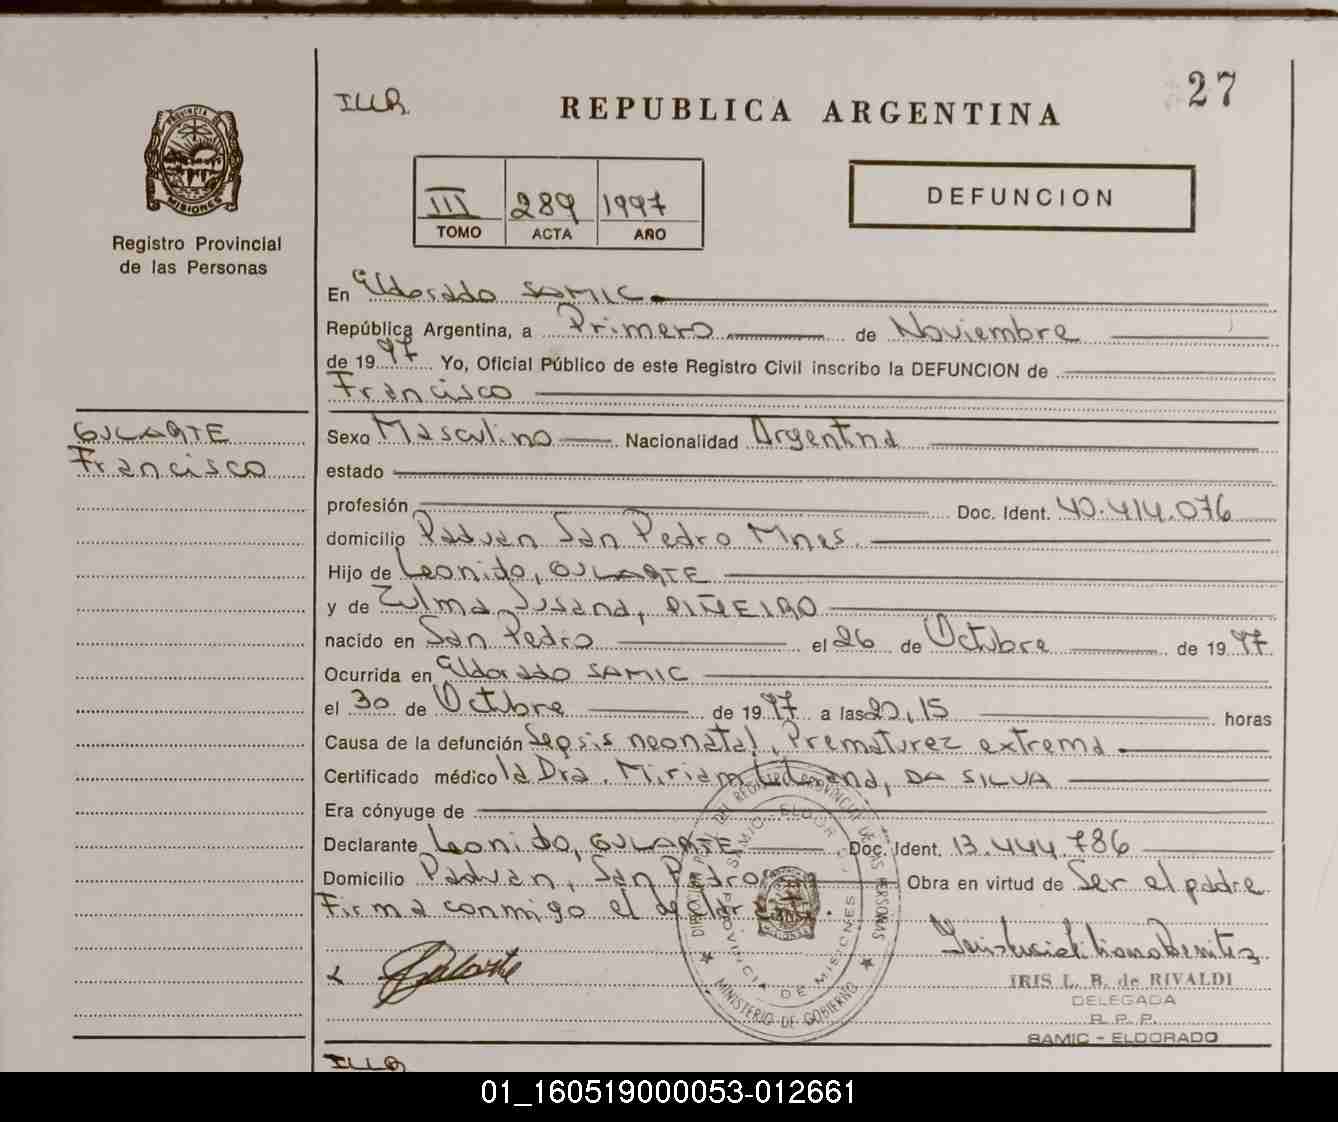 27
ILLR
REPUBLICA ARGENTINA
PROVINCIA DE
MISIONES
Registro Provincial
de las Personas
III 289 1997
TOMO ACTA AÑO
DEFUNCION
En Eldorado SAMIC
República Argentina, a Primero de Noviembre
de 1997 Yo, Oficial Público de este Registro Civil inscribo la DEFUNCION de
Francisco
GULARTE
Francisco
Sexo Masculino Nacionalidad Argentina
estado
profesión Doc. Ident. 40.414.076
domicilio Paduan San Pedro Mnes.
Hijo de Leonido, GULARTE
y de Zulma Susana, PIÑEIRO
nacido en San Pedro el 26 de Octubre de 1997
Ocurrida en Eldorado SAMIC
el 30 de Octubre de 1997 a las 20,15 horas
Causa de la defunción Sepsis neonatal, Prematurez extrema
Certificado médico la Dra. Miriam Liliana, DA SILVA
Era cónyuge de
Declarante Leonido, GULARTE Doc. Ident. 13.444.786
Domicilio Paduan, San Pedro Obra en virtud de Ser el padre
Firma conmigo el declarante.
DIRECCION REGISTRO PROVINCIAL DE LAS PERSONAS
SAMIC - ELDORADO
PROVINCIA DE MISIONES
MINISTERIO DE GOBIERNO
Gularte
IRIS L. B. de RIVALDI
DELEGADA
R. P. P.
SAMIC - ELDORADO
ILLR
01_160519000053-012661